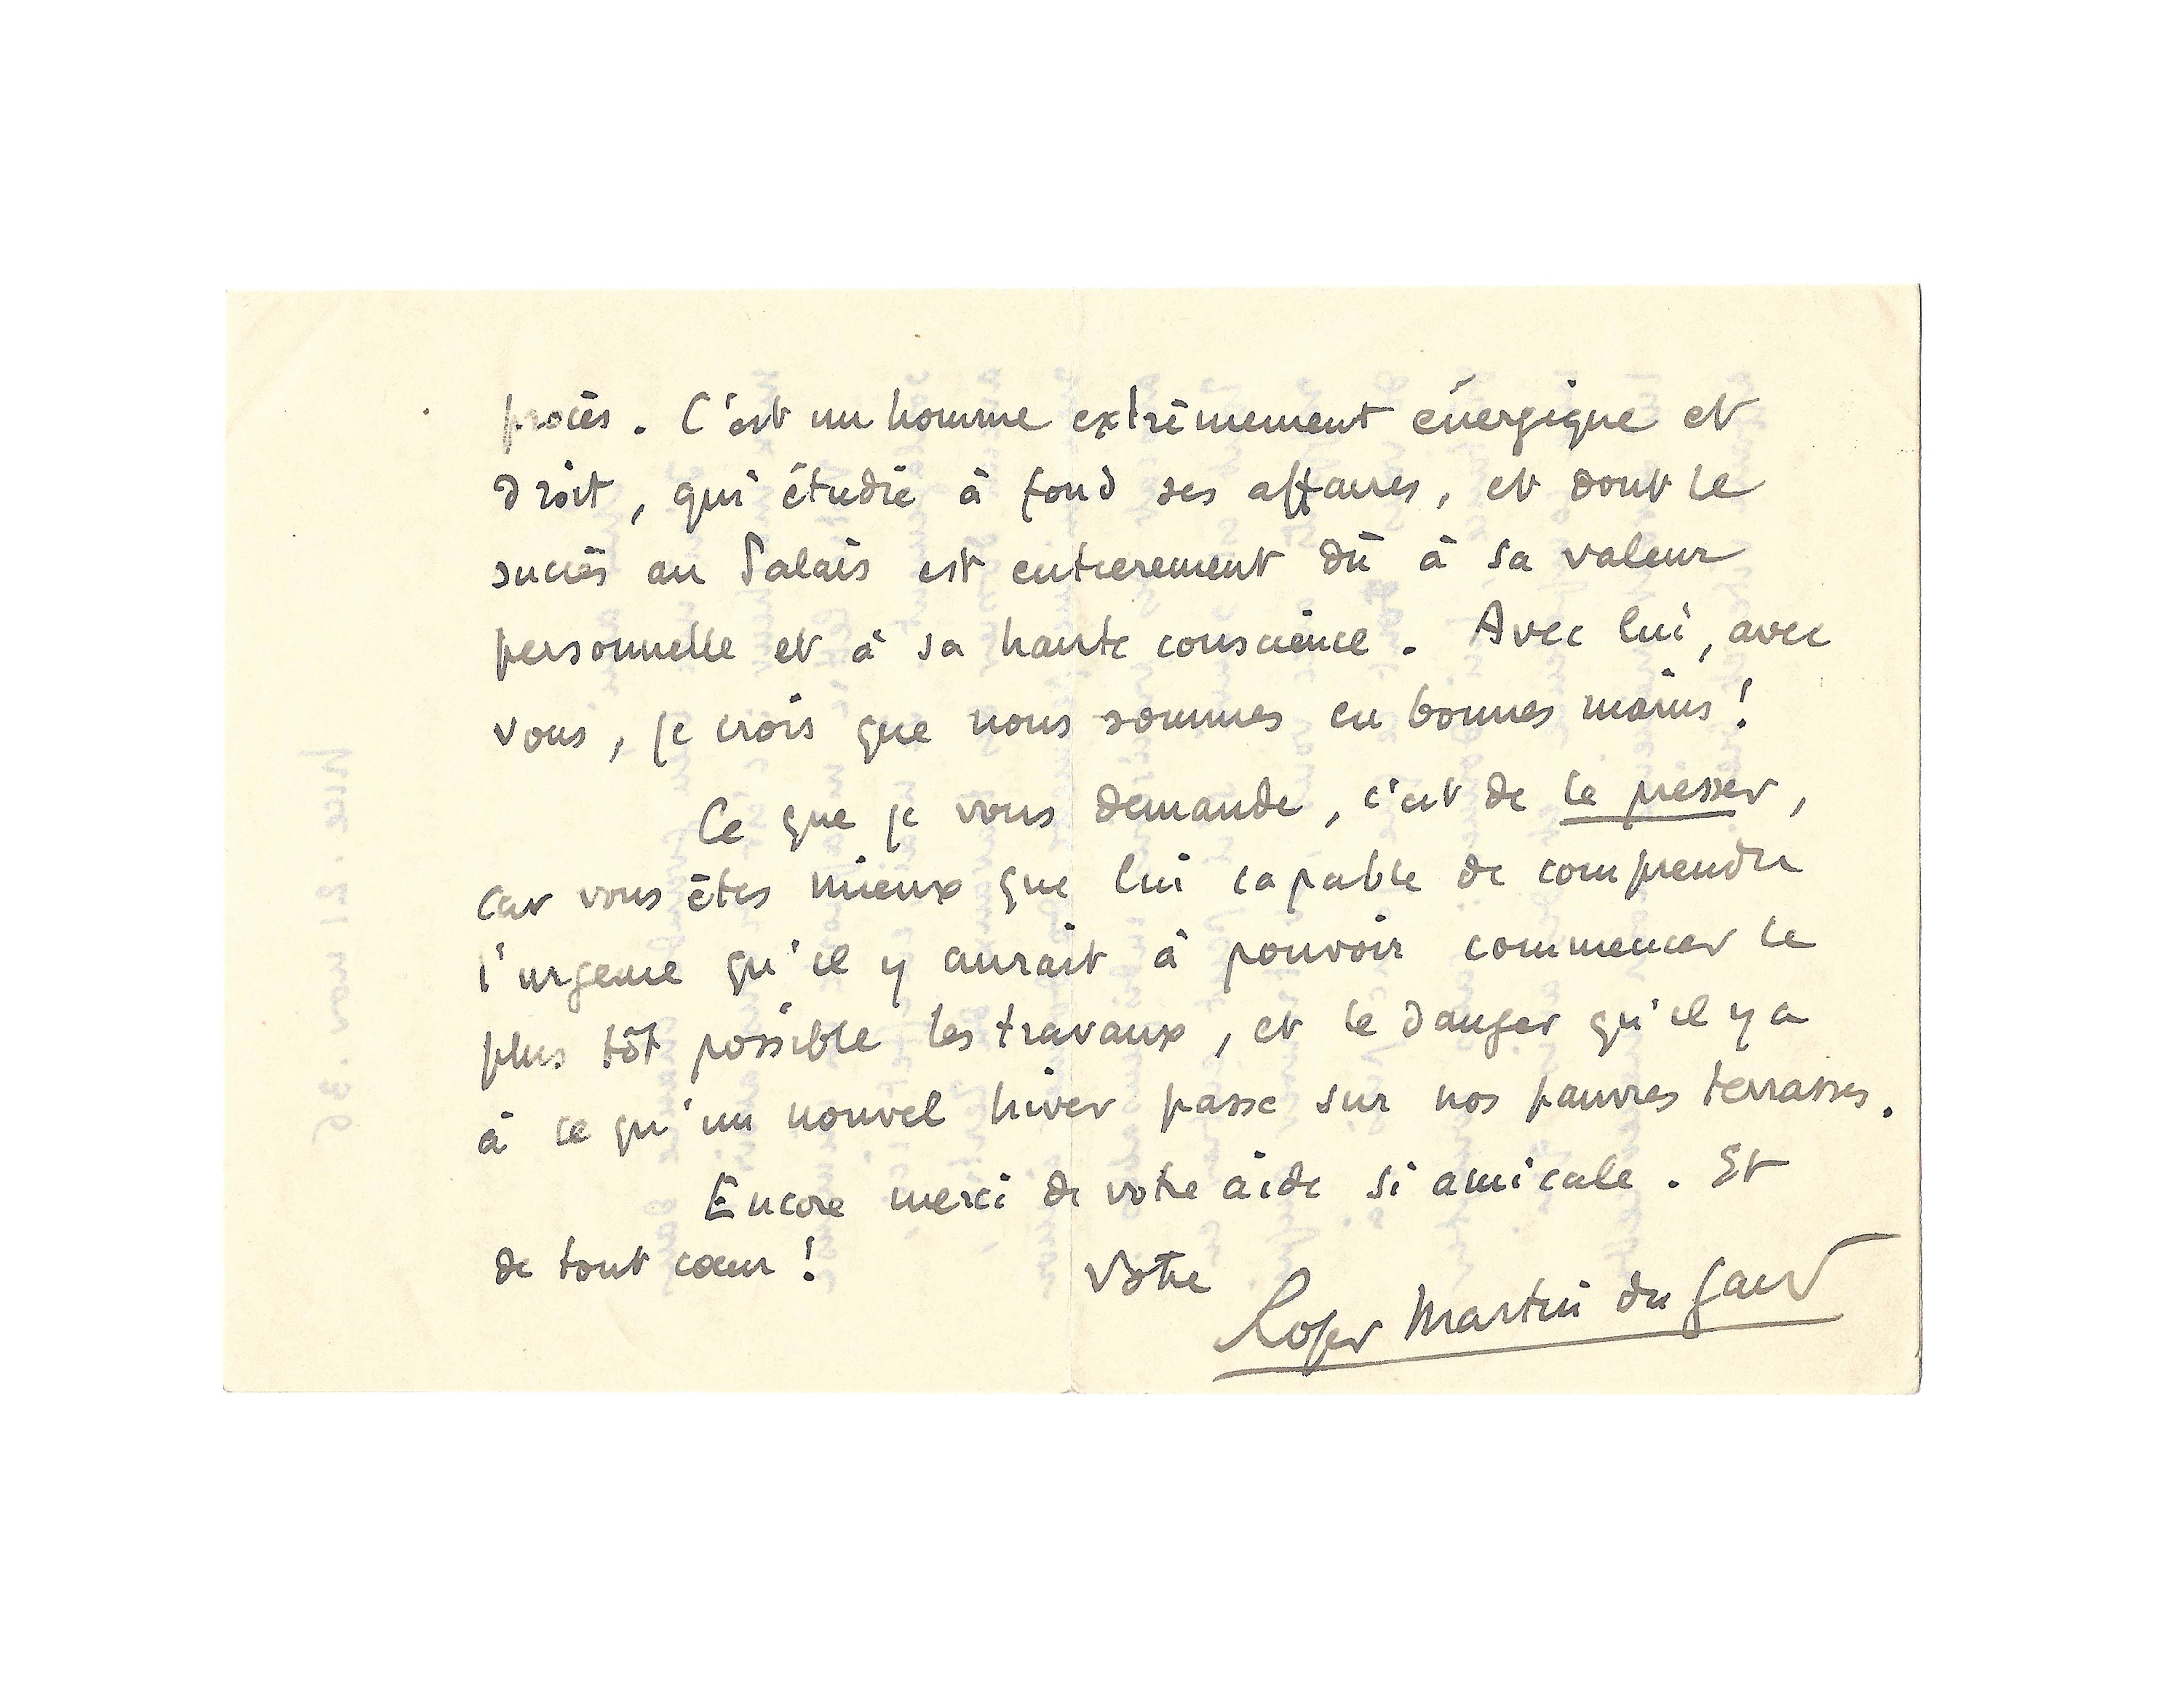 procès. C'est un homme extrêmement énergique et
droit, qui étudie à fond ses affaires, et dont le
succès au Palais est entièrement dû à sa valeur
personnelle et à sa haute conscience. Avec lui, avec
vous, je crois que nous sommes en bonnes mains !
Ce que je vous demande, c'est de le presser,
car vous êtes mieux que lui capable de comprendre
l'urgence qu'il y aurait à pouvoir commencer le
plus tôt possible les travaux, et le danger qu'il y a
à ce qu'un nouvel hiver passe sur nos pauvres terrasses.
Encore merci de votre aide si amicale. Et
de tout cœur ! Votre
Roger Martin du Gard
Nice. 21 nov. 36